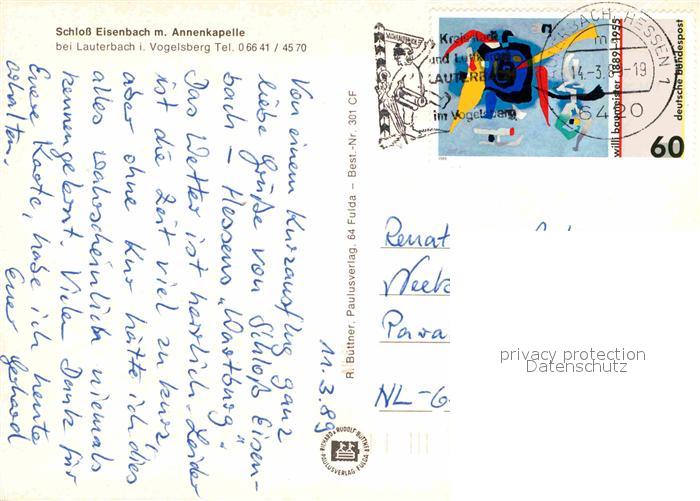 Schloß Eisenbach m. Annenkapelle
bei Lauterbach i. Vogelsberg Tel. 0 66 41 / 45 70
11.3.89
Von einem Kurzausflug ganz
liebe Grüße von Schloß Eisen-
bach – Hessens „Wartburg".
Das Wetter ist herrlich. Leider
ist die Zeit viel zu kurz,
aber ohne Kur hätte ich dies
alles wahrscheinlich niemals
kennengelernt. Vielen Dank für
Eure Karte, habe ich heute
erhalten.
Euer Gerhard
R. Büttner, Paulusverlag, 64 Fulda – Best.-Nr. 301 CF
RICHARD & RUDOLF BÜTTNER
PAULUSVERLAG FULDA
Kreisstadt
und
LAUTERBACH
im Vogelsberg
LAUTERBACH, HESSEN 1
14.-3. -19
6420
willi baumeister 1889-1955
deutsche bundespost
60
Renat
NL-6
privacy protection
Datenschutz